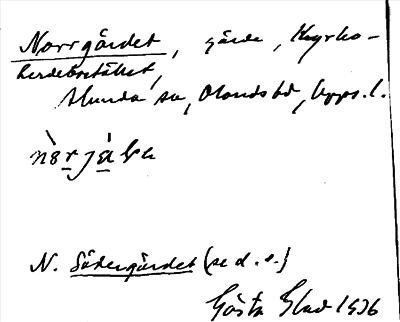 Norrgärdet, gärde, Kyrko-
herdebostället,
Alunda sn, Olands hd, Upps. l.
N. Södergärdet (se d. o.)
Gösta Glad 1936